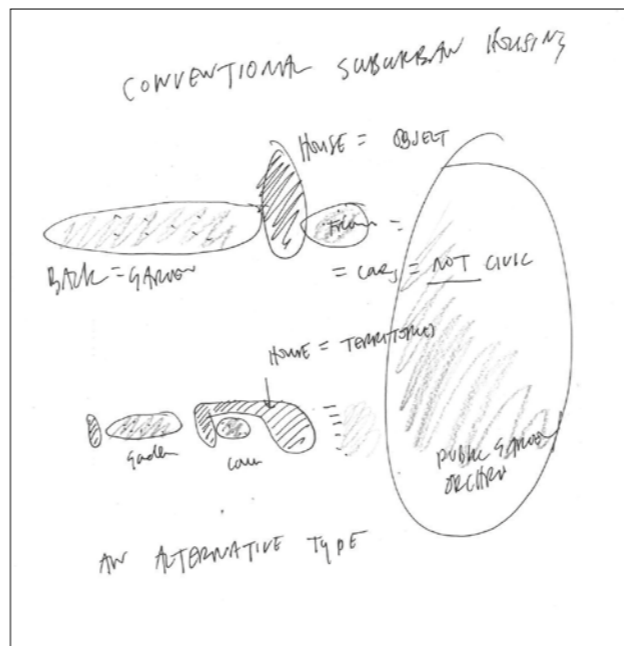 CONVENTIONAL SUBURBAN HOUSING
HOUSE = OBJECT
FRONT =
BACK = GARDEN
= CARS = NOT CIVIC
HOUSE = TERRITORIES
Garden
PUBLIC GARDEN
ORCHARD
AN ALTERNATIVE TYPE